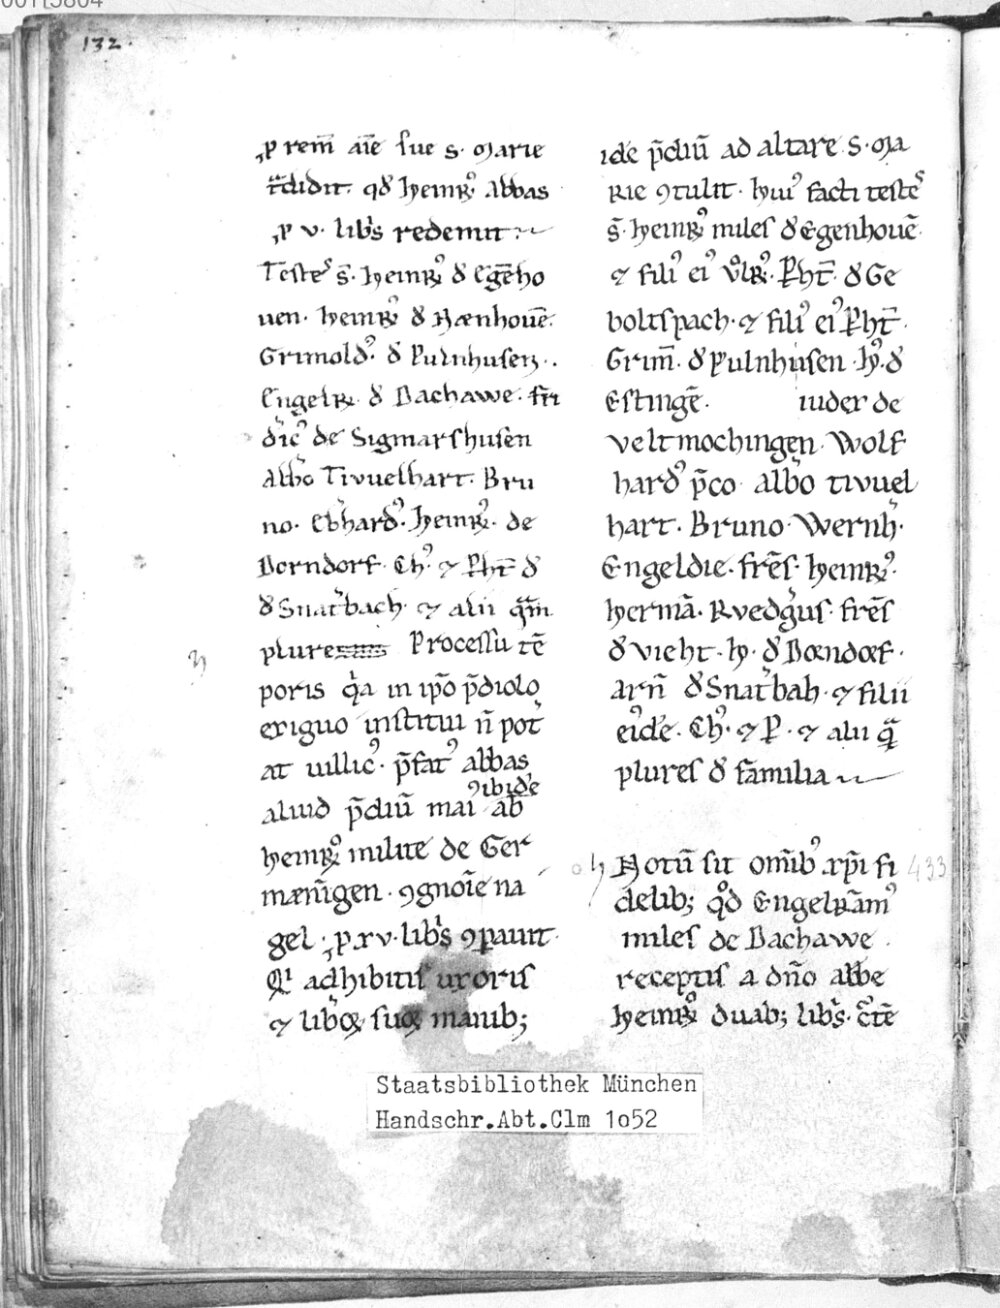 132.
ꝓ rem̄ aīe sue s. Marie
t̄didit. qd̄ heinrꝰ abbas
ꝓ v. lib̄s redemit.
Testeˢ s̄. heinrꝰ đ Egēho
uen. heinrꝰ đ Hænhouē.
Grimoldꝰ. đ Pulnhusen.
Engelr̄. đ Bachawe. fr̄i
đic̄ꝰ de Sigmarshusen
Alb̄o Tivuelhart. Bru
no. Eb̄hardꝰ. heinrꝰ. de
Dorndorf. Ch̄ꝰ. ⁊ Pht̄ đ
đ Snat̄bach. ⁊ alii qᵃ̄m
plures Processu tē
poris q̄a in ip̄o p̄diolo
exiguo institui n̄ pot̄
at uillicꝰ. p̄fatꝰ abbas
ꝯibidē
aliud p̄diū maiꝰ ab
heinrꝰ milite de Ger
mæn̄igen. ꝯgnoīe na
gel. ꝓ xv. lib̄s ꝯpauit.
Qⁱ adhibitis uxoris
⁊ lib̄oꝝ suoꝝ manib;
idē p̄diū ad altare s. Ma
rie ꝯtulit. huiꝰ facti testeˢ
s̄. heinrꝰ miles đ Egenhouē.
⁊ filiꝰ eiꝰ v̊lr̄ꝰ. Pht̄. đ Ge
boltspach. ⁊ filiꝰ eiꝰ Pht̄.
Grim̄. đ Pulnhusen. hꝰ. đ
Estingē. iuder de
veltmochingen. Wolf
hardꝰ p̄co alb̄o tivuel
hart. Bruno. Wernh̄.
Engeldie. fr̄es. heinrꝰ.
hermā. Rvedḡus. fr̄es
đ vieht. h. đ Dorndorf.
arn̄ đ Snat̄bah. ⁊ filii
eiꝰdē. Ch̄ꝰ. ⁊ P. ⁊ alii qᵃ̄
plures đ familia
Notū sit om̄ibꝰ xp̄i fi
433
delib; qd̊ Engelr̄amꝰ
miles de Bachawe.
receptis a dn̄o abbe
heinrꝰ duab; lib̄s. c̄tē
Staatsbibliothek München
Handschr.Abt.Clm 1o52